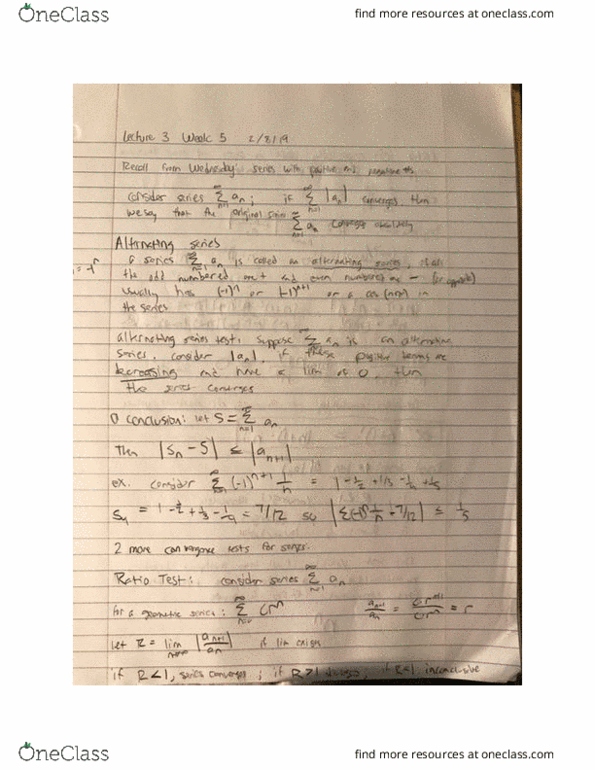 OneClass
find more resources at oneclass.com
Lecture 3 Week 5 2/8/19
Recall from Wednesday: series with positive and negative #s
consider series ∞∑n=1 an; if ∞∑n=1 |an| converges then
we say that the original series ∞∑n=1 an converges absolutely
Alternating series
a series ∞∑n=1 an is called an alternating series, if all
the odd numbered are + and even numbered are − (or opposite)
usually has (-1)^n or (-1)^n+1 or a cos(nπ) in
the series
alternating series test: suppose ∞∑n=1 an is an alternating
series, consider |an|, if these positive terms are
decreasing and have a lim of 0, then
the series converges
conclusion: let S = ∞∑n=1 an
Then |Sn - S| ≤ |an+1|
ex. consider ∞∑n=1 (-1)^n+1 1/n = 1 - 1/2 + 1/3 - 1/4 + 1/5
S4 = 1 - 1/2 + 1/3 - 1/4 = 7/12 so ≤ 1/5
2 more convergence tests for series.
Ratio Test: consider series ∞∑n=1 an
for a geometric series: cr^n an+1/an = cr^n+1/cr^n = r
let R = lim n→∞ |an+1/an| if lim exists
if R<1, series converges; if R>1 diverges, if R=1 inconclusive
OneClass
find more resources at oneclass.com